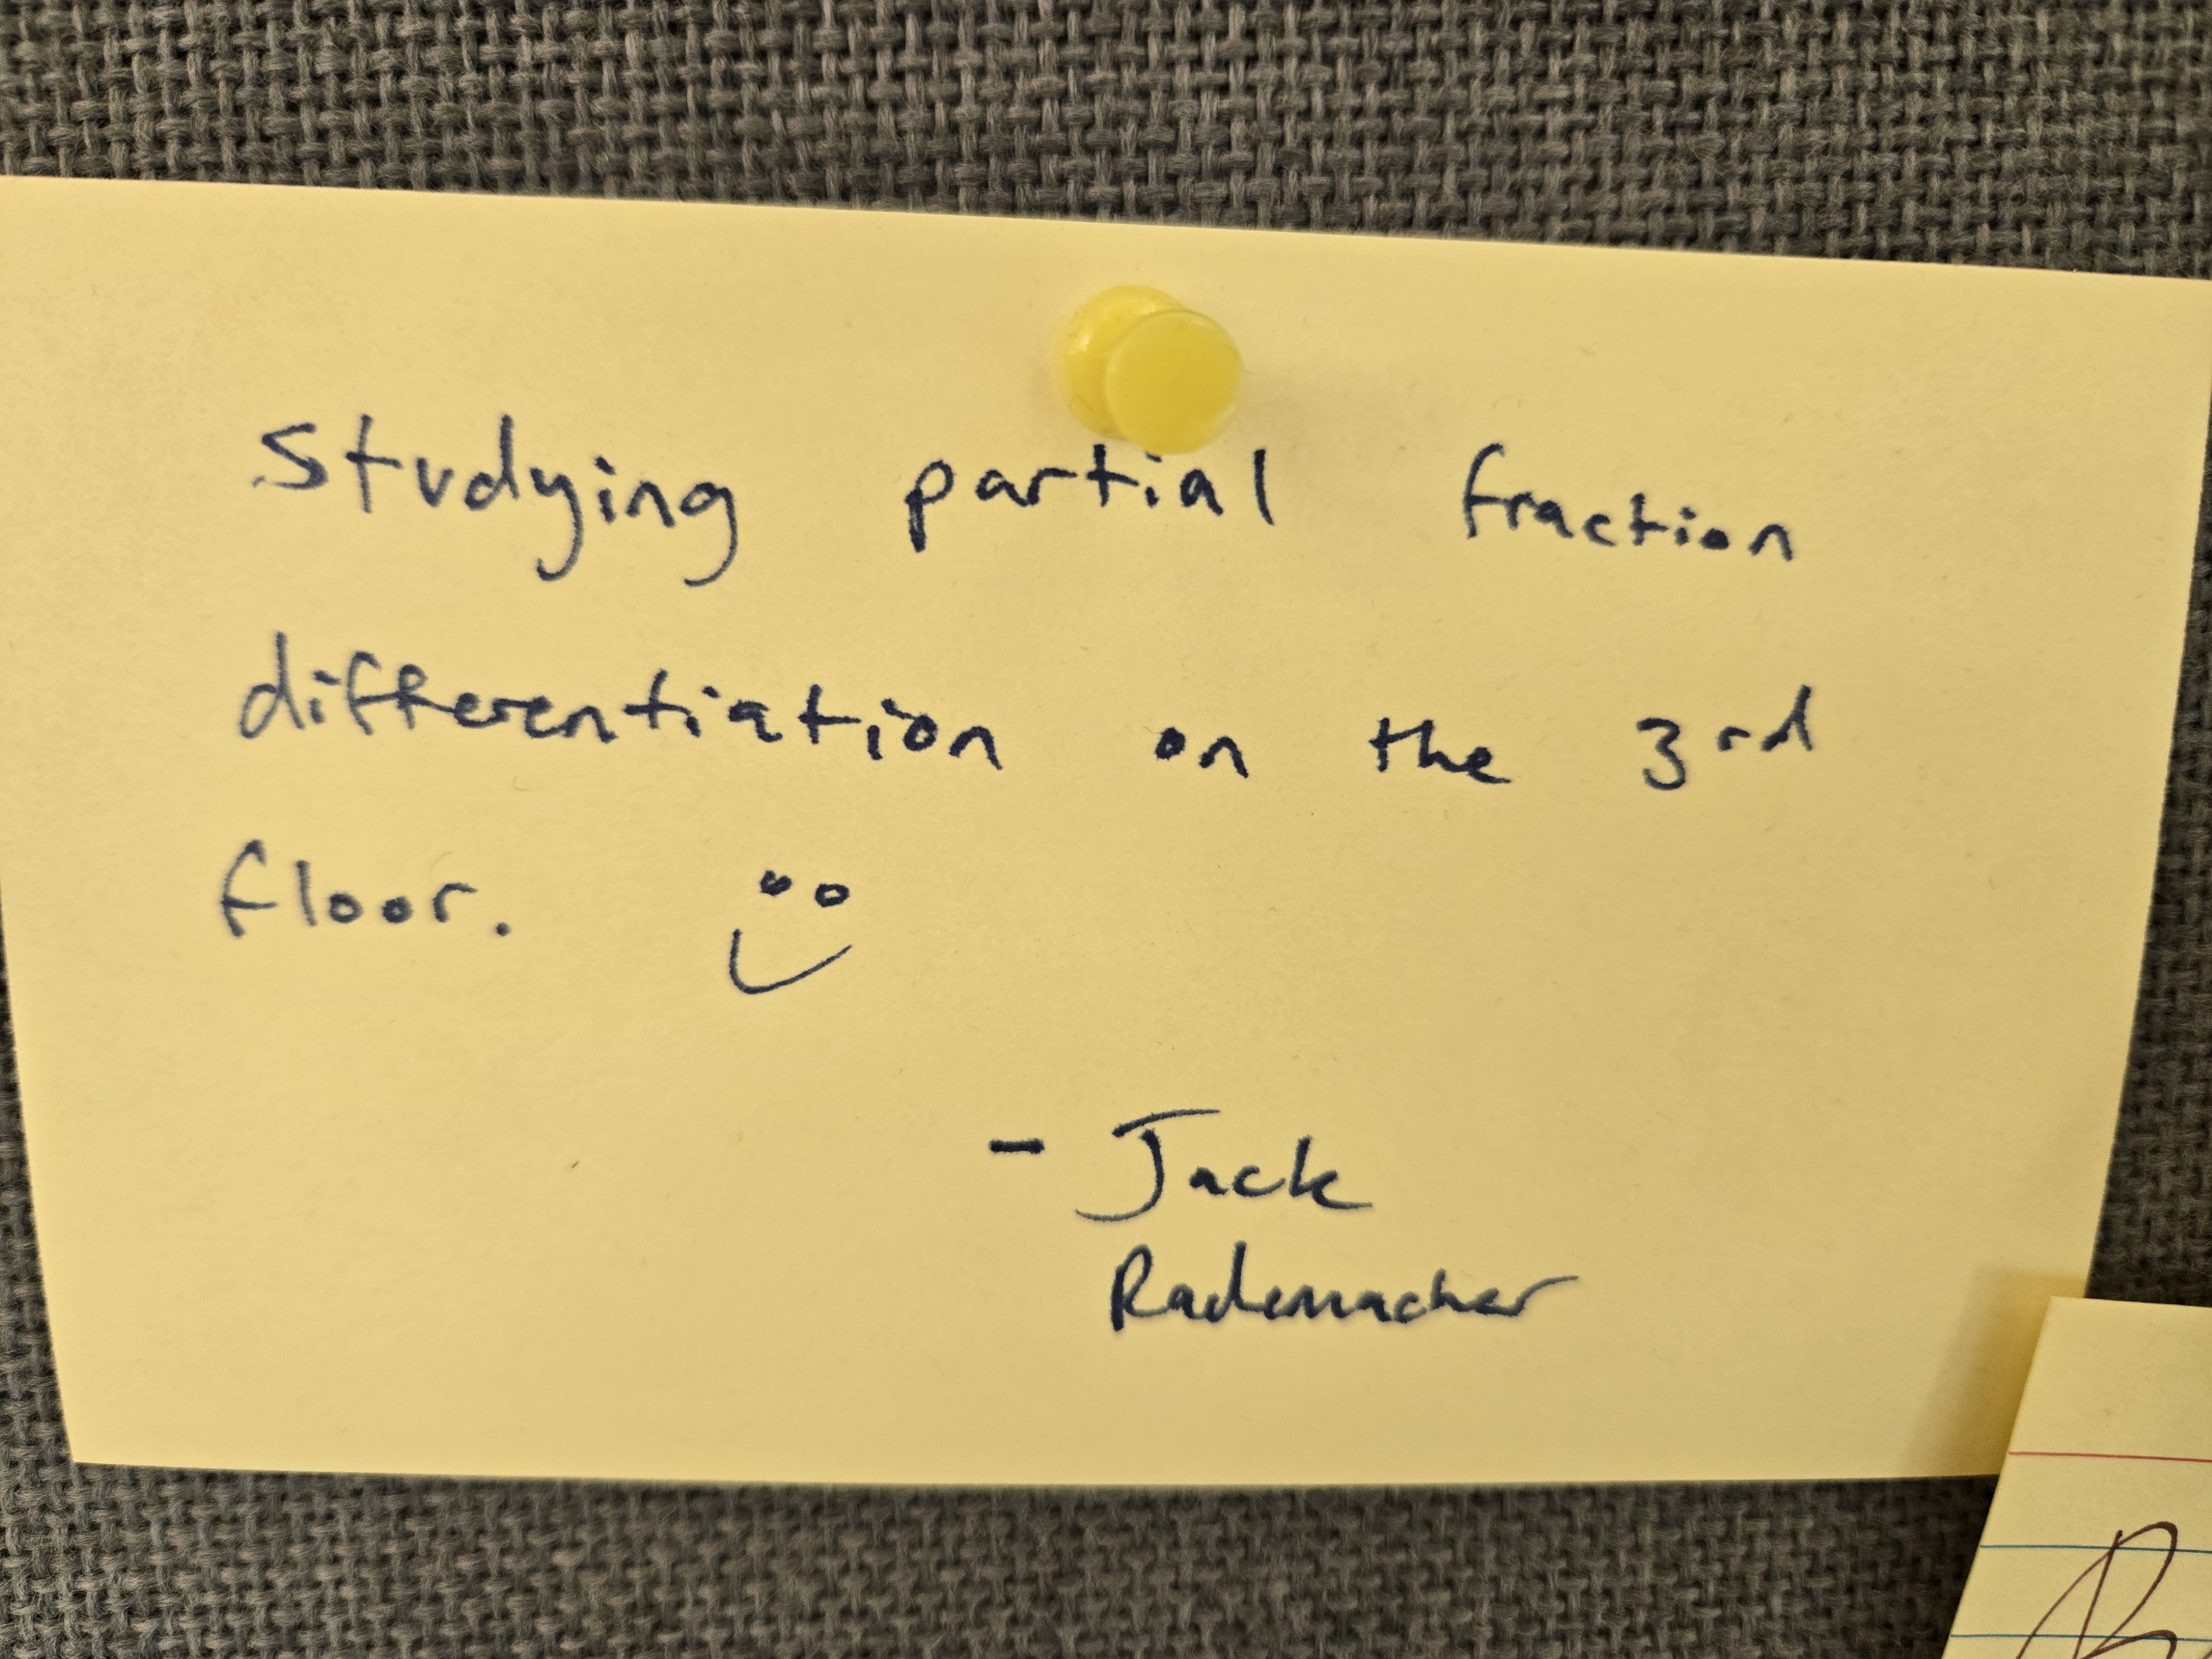 Studying partial fraction
differentiation on the 3rd
floor.
- Jack
Rademacher